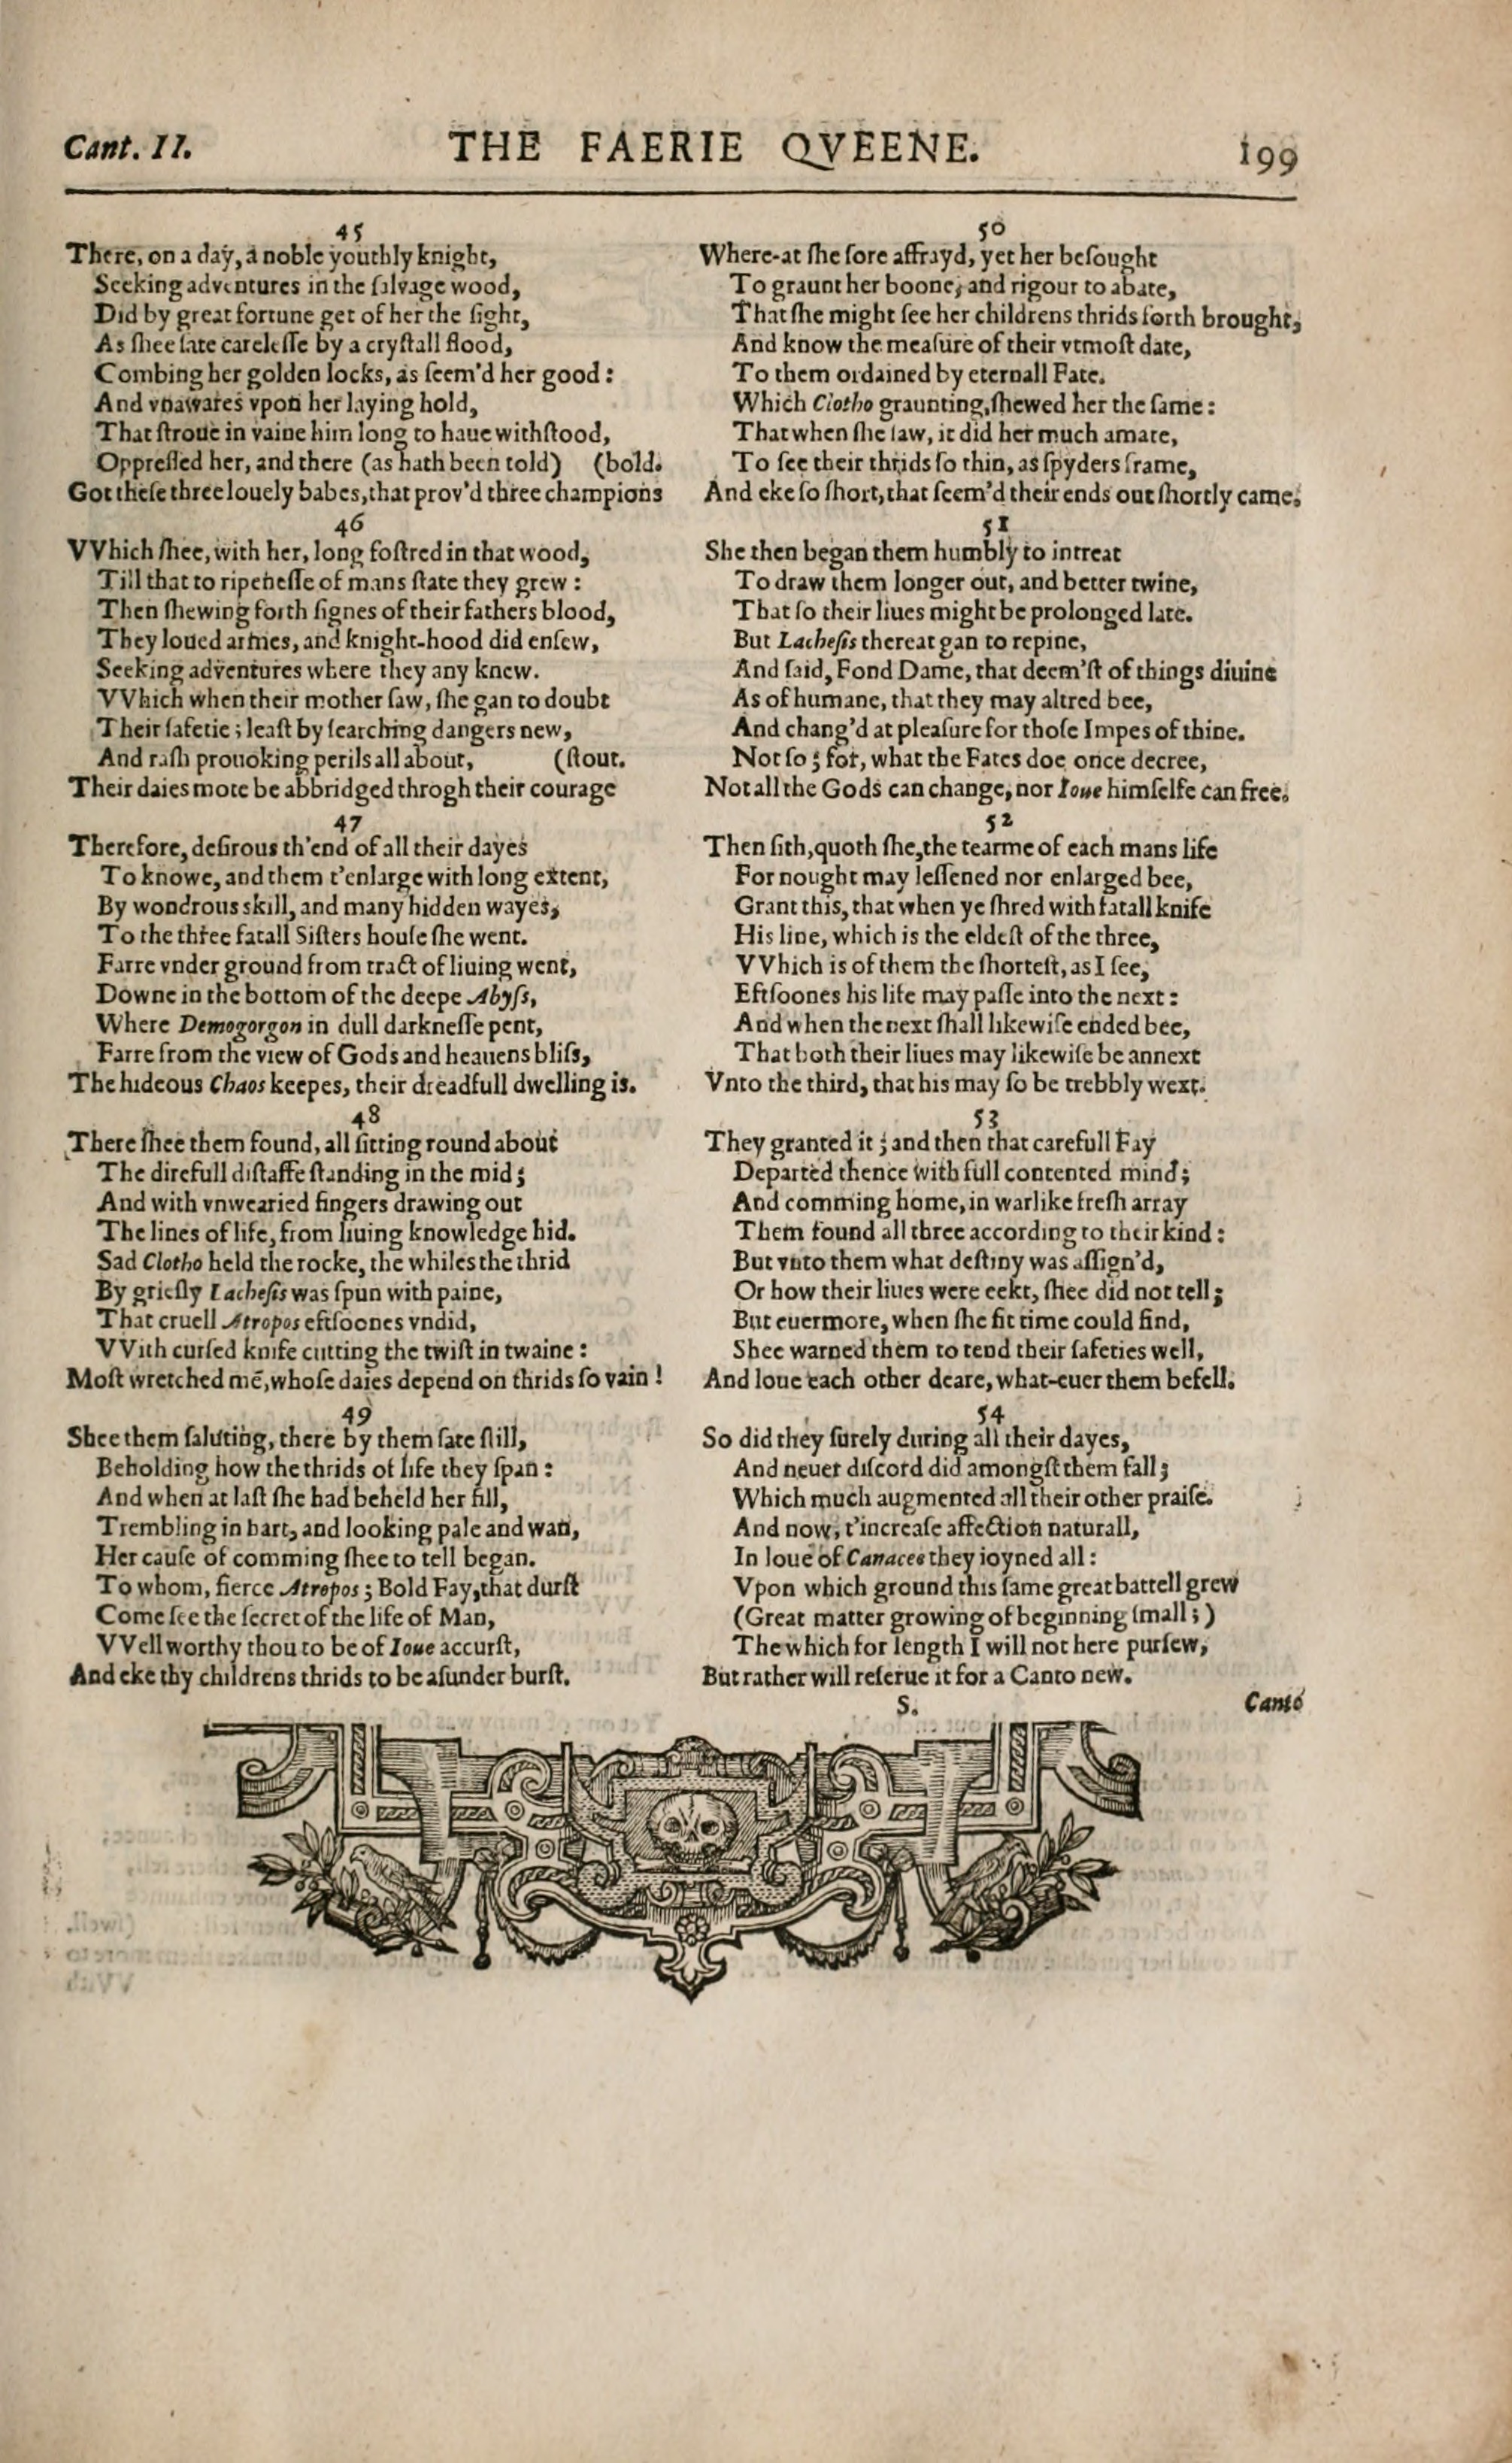 Cant. II.
THE FAERIE QVEENE.
199
45
There, on a day, a noble youthly knight,
Seeking adventures in the ſalvage wood,
Did by great fortune get of her the ſight,
As ſhee ſate careleſſe by a cryſtall flood,
Combing her golden locks, as ſeem'd her good:
And vnawares vpon her laying hold,
That ſtroue in vaine him long to haue withſtood,
Oppreſſed her, and there (as hath been told) (bold.
Got theſe three louely babes, that prov'd three champions
46
VVhich ſhee, with her, long foſtred in that wood,
Till that to ripeneſſe of mans ſtate they grew:
Then ſhewing forth ſignes of their fathers blood,
They loued armes, and knight-hood did enſew,
Seeking adventures where they any knew.
VVhich when their mother ſaw, ſhe gan to doubt
Their ſafetie; leaſt by ſearching dangers new,
And raſh prouoking perils all about, (ſtout.
Their daies mote be abbridged throgh their courage
47
Therefore, deſirous th'end of all their dayes
To knowe, and them t'enlarge with long extent,
By wondrous skill, and many hidden wayes,
To the three fatall Siſters houſe ſhe went.
Farre vnder ground from tract of liuing went,
Downe in the bottom of the deepe Abyſs,
Where Demogorgon in dull darkneſſe pent,
Farre from the view of Gods and heauens bliſs,
The hideous Chaos keepes, their dreadfull dwelling is.
48
There ſhee them found, all ſitting round about
The direfull diſtaffe ſtanding in the mid;
And with vnwearied fingers drawing out
The lines of life, from liuing knowledge hid.
Sad Clotho held the rocke, the whiles the thrid
By grieſly Lacheſis was ſpun with paine,
That cruell Atropos eftſoones vndid,
VVith curſed knife cutting the twiſt in twaine:
Moſt wretched mē, whoſe daies depend on thrids ſo vain!
49
Shee them ſaluting, there by them ſate ſtill,
Beholding how the thrids of life they ſpan:
And when at laſt ſhe had beheld her fill,
Trembling in hart, and looking pale and wan,
Her cauſe of comming ſhee to tell began.
To whom, fierce Atropos; Bold Fay, that durſt
Come ſee the ſecret of the life of Man,
VVell worthy thou to be of Ioue accurſt,
And eke thy childrens thrids to be aſunder burſt.
50
Where-at ſhe ſore affrayd, yet her beſought
To graunt her boone, and rigour to abate,
That ſhe might ſee her childrens thrids forth brought,
And know the meaſure of their vtmoſt date,
To them ordained by eternall Fate.
Which Clotho graunting, ſhewed her the ſame:
That when ſhe ſaw, it did her much amate,
To ſee their thrids ſo thin, as ſpyders frame,
And eke ſo ſhort, that ſeem'd their ends out ſhortly came.
51
She then began them humbly to intreat
To draw them longer out, and better twine,
That ſo their liues might be prolonged late.
But Lacheſis thereat gan to repine,
And ſaid, Fond Dame, that deem'ſt of things diuine
As of humane, that they may altred bee,
And chang'd at pleaſure for thoſe Impes of thine.
Not ſo; for, what the Fates doe once decree,
Not all the Gods can change, nor Ioue himſelfe can free.
52
Then ſith, quoth ſhe, the tearme of each mans life
For nought may leſſened nor enlarged bee,
Grant this, that when ye ſhred with fatall knife
His line, which is the eldeſt of the three,
VVhich is of them the ſhorteſt, as I ſee,
Eftſoones his life may paſſe into the next:
And when the next ſhall likewiſe ended bee,
That both their liues may likewiſe be annext
Vnto the third, that his may ſo be trebbly wext.
53
They granted it; and then that carefull Fay
Departed thence with full contented mind;
And comming home, in warlike freſh array
Them found all three according to their kind:
But vnto them what deſtiny was aſſign'd,
Or how their liues were eekt, ſhee did not tell;
But euermore, when ſhe fit time could find,
Shee warned them to tend their ſafeties well,
And loue each other deare, what-euer them befell.
54
So did they ſurely during all their dayes,
And neuer diſcord did amongſt them fall;
Which much augmented all their other praiſe.
And now, t'increaſe affection naturall,
In loue of Canacee they ioyned all:
Vpon which ground this ſame great battell grew
(Great matter growing of beginning ſmall;)
The which for length I will not here purſew,
But rather will reſerue it for a Canto new.
S.
Canto